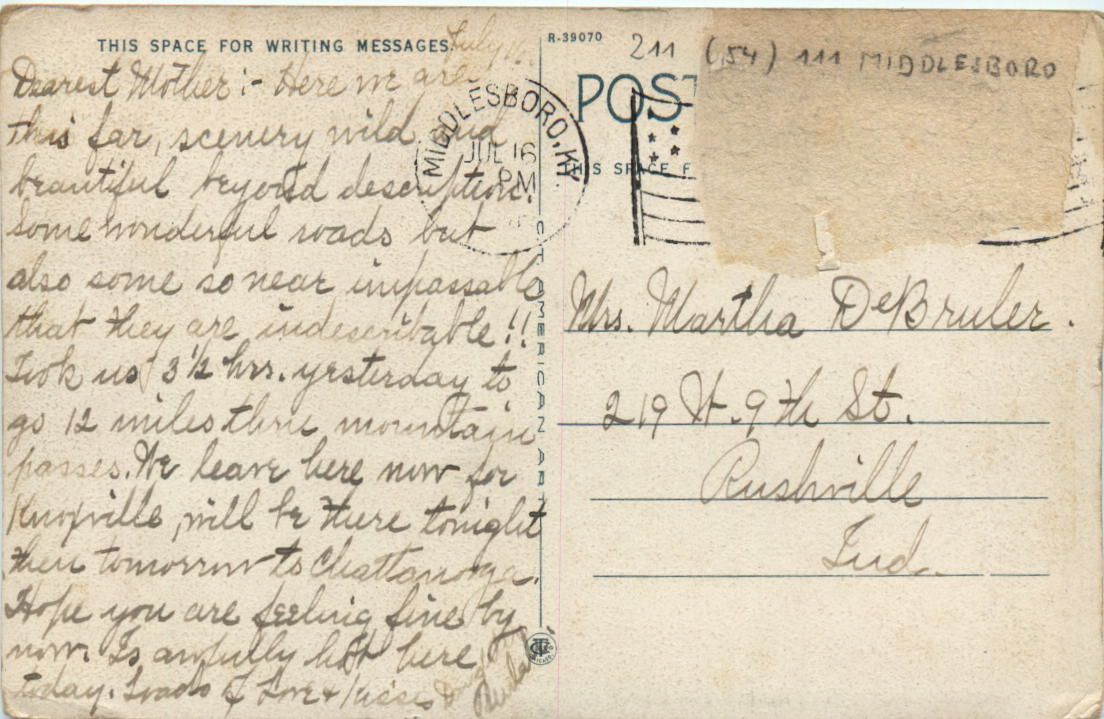 THIS SPACE FOR WRITING MESSAGES
July 16
Dearest Mother :- Here we are
this far, scenery wild and
beautiful beyond description.
Some wonderful roads but
also some so near impassable
that they are indescribable!!
Took us 3 1/2 hrs. yesterday to
go 12 miles thru mountain
passes. We leave here now for
Knoxville, will be there tonight
then tomorrow to Chattanooga.
Hope you are feeling fine by
now. Is awfully hot here
today. Loads of Love & Kisses
C.T. AMERICAN ART
R-39070
211 (54) 111 MIDDLESBORO
POST
THIS SPACE F
MIDDLESBORO, KY.
JUL 16
PM
Mrs. Martha DeBruler.
219 W. 9th St.
Rushville
Ind.